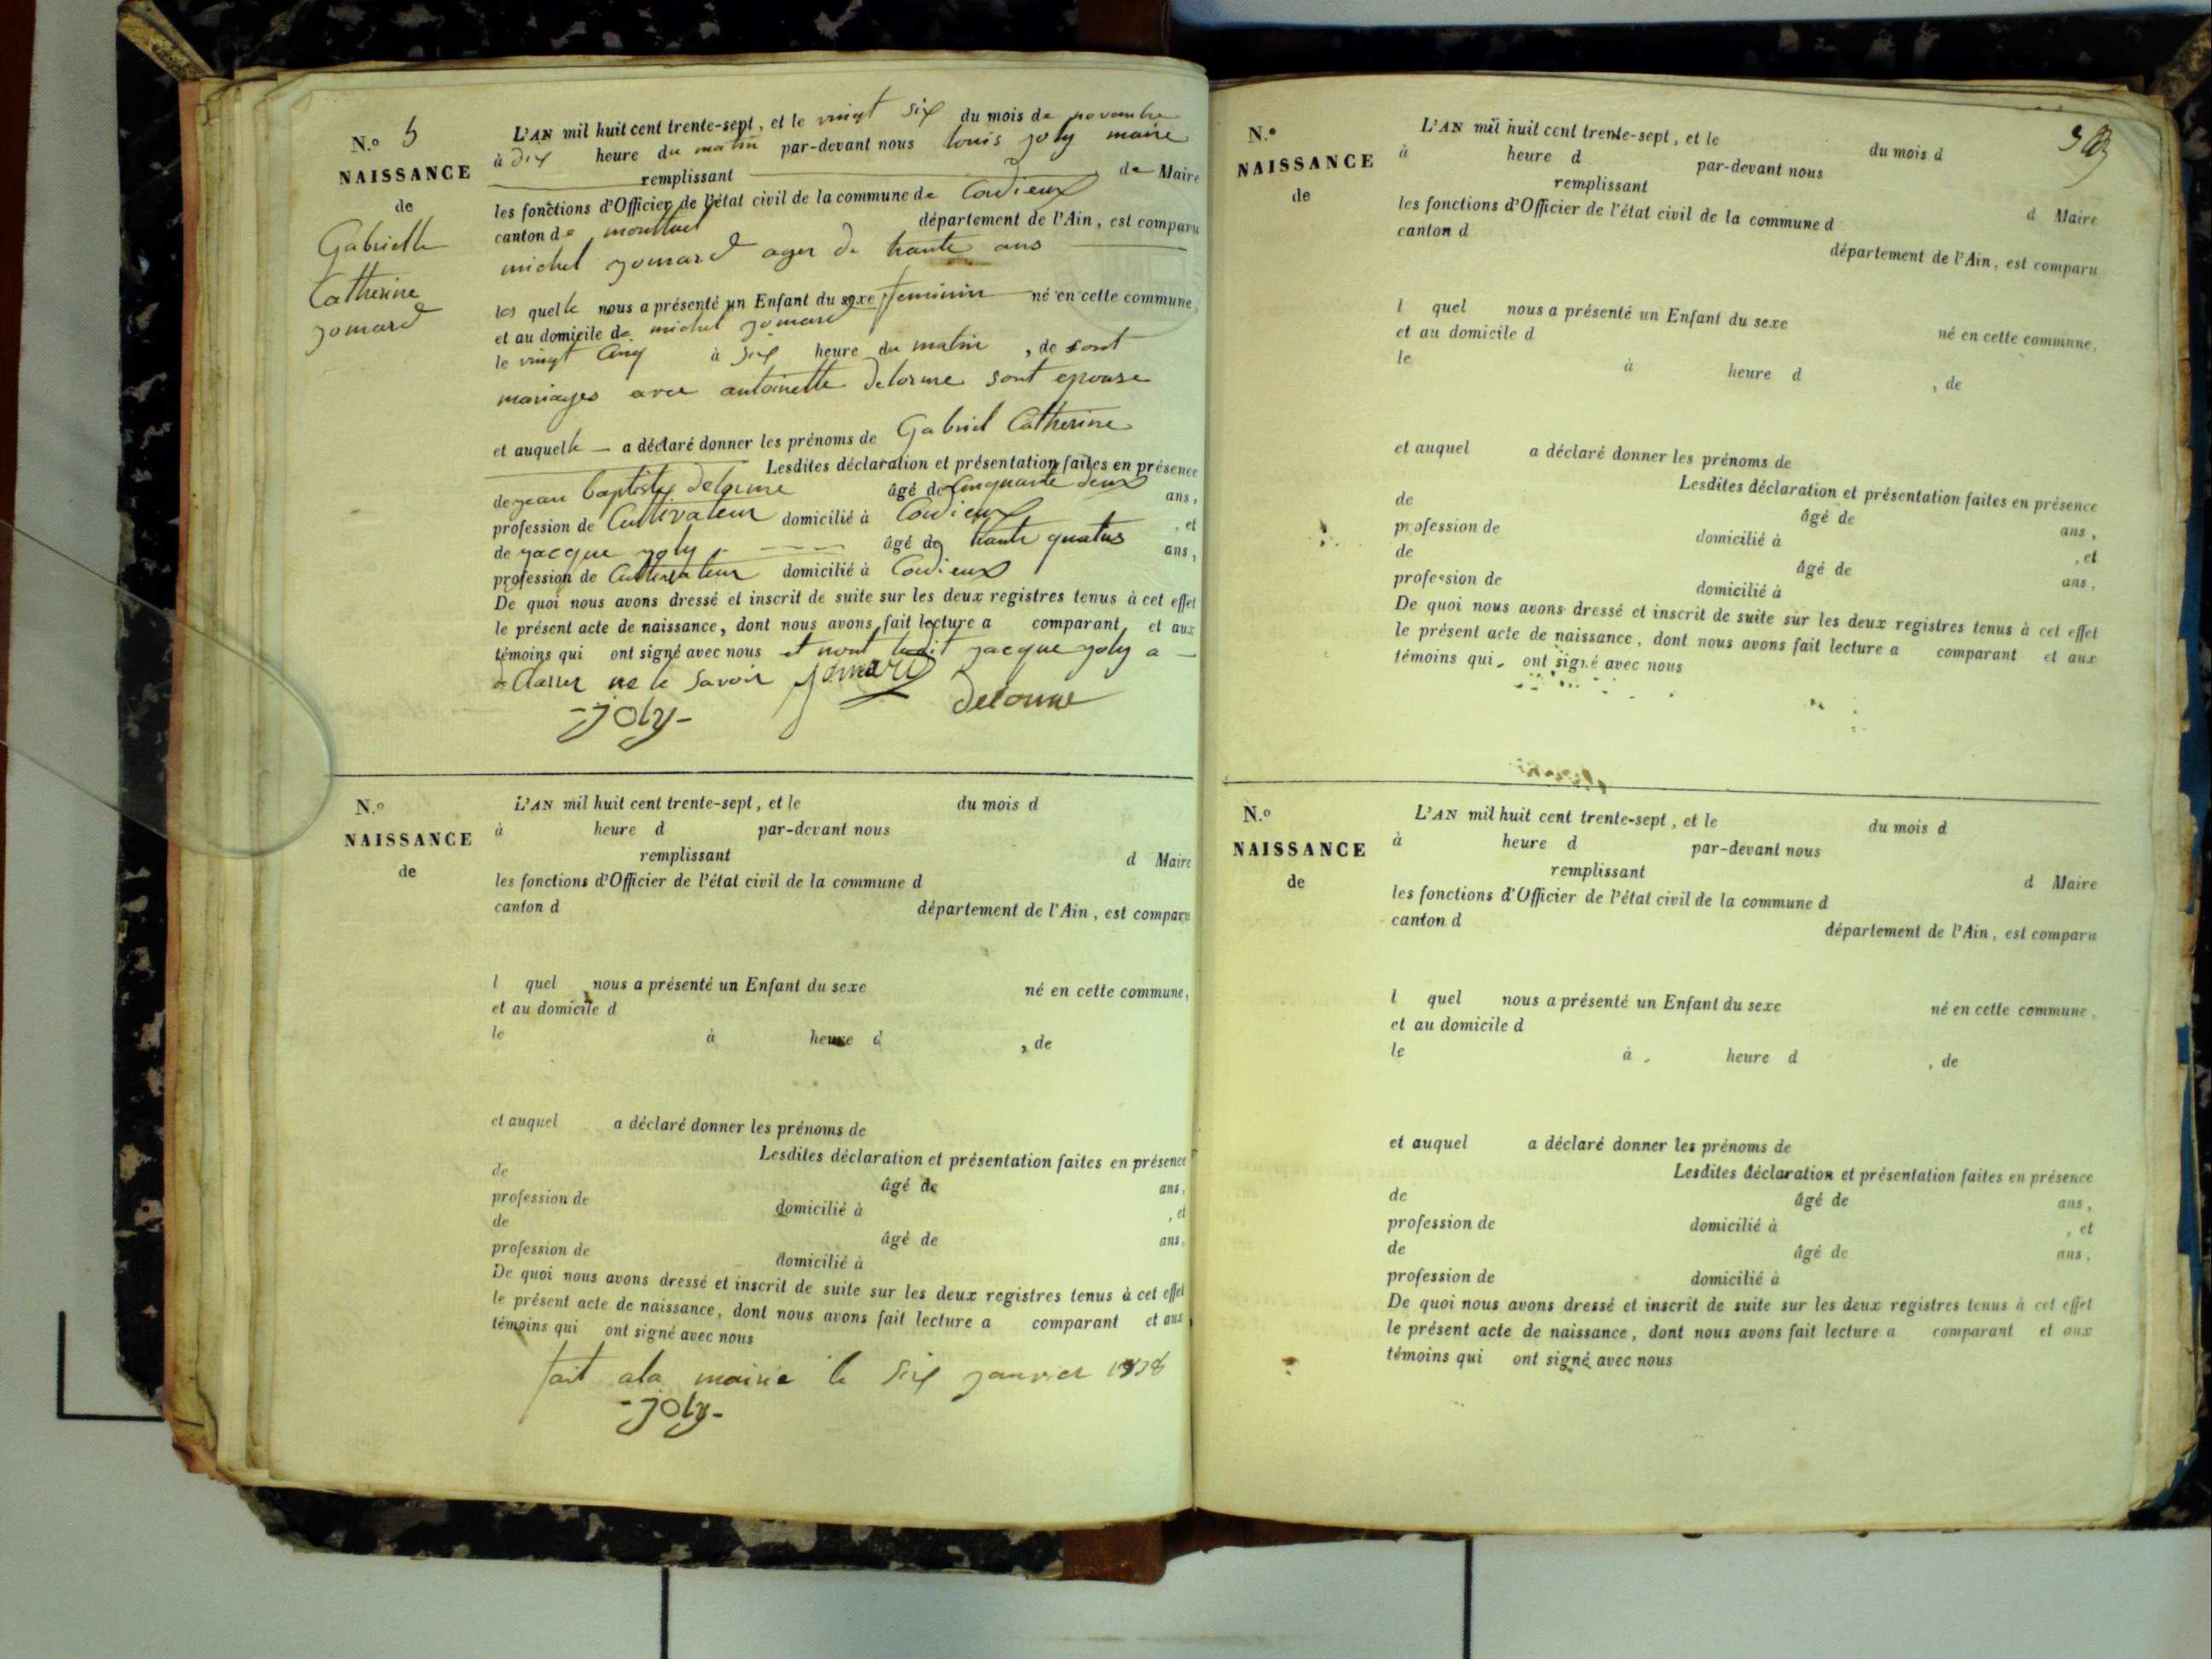 N.o 5
NAISSANCE
de
Gabrielle
Catherine
jomard
L'AN mil huit cent trente-sept, et le vingt six du mois de novembre
à dix heure du matin par-devant nous louis joly maire
remplissant de Maire
les fonctions d'Officier de l'état civil de la commune de Cordieux
canton de montluel département de l'Ain, est comparu
michel jomard ager de trante ans
les quelle nous a présenté un Enfant du sexe feminin né en cette commune,
et au domicile de michel jomard
le vingt cinq à six heure du matin, de sont
mariages avec antoinette delorme sont epouse
et auquelle a déclaré donner les prénoms de Gabriel Catherine
Lesdites déclaration et présentation faites en présence
de jean baptiste delorme âgé de cinquante deux ans,
profession de Cultivateur domicilié à Cordieux, et
de jacque joly âgé de trante quatres ans,
profession de Cultivateur domicilié à Cordieux
De quoi nous avons dressé et inscrit de suite sur les deux registres tenus à cet effet
le présent acte de naissance, dont nous avons fait lecture a comparant et aux
témoins qui ont signé avec nous et nont ledit jacque joly a
declarer ne le savoir jomard
-joly- delorme
N.o
NAISSANCE
de
L'AN mil huit cent trente-sept, et le du mois d
à heure d par-devant nous
remplissant d Maire
les fonctions d'Officier de l'état civil de la commune d
canton d département de l'Ain, est comparu
l quel nous a présenté un Enfant du sexe né en cette commune,
et au domicile d
le à heure d , de
et auquel a déclaré donner les prénoms de
Lesdites déclaration et présentation faites en présence
de âgé de ans,
profession de domicilié à , et
de âgé de ans,
profession de domicilié à
De quoi nous avons dressé et inscrit de suite sur les deux registres tenus à cet effet
le présent acte de naissance, dont nous avons fait lecture a comparant et aux
témoins qui ont signé avec nous
fait ala mairie le six janvier 1838
-joly-
N.o
NAISSANCE
de
L'AN mil huit cent trente-sept, et le du mois d
à heure d par-devant nous
remplissant d Maire
les fonctions d'Officier de l'état civil de la commune d
canton d département de l'Ain, est comparu
l quel nous a présenté un Enfant du sexe né en cette commune,
et au domicile d
le à heure d , de
et auquel a déclaré donner les prénoms de
Lesdites déclaration et présentation faites en présence
de âgé de ans,
profession de domicilié à , et
de âgé de ans,
profession de domicilié à
De quoi nous avons dressé et inscrit de suite sur les deux registres tenus à cet effet
le présent acte de naissance, dont nous avons fait lecture a comparant et aux
témoins qui ont signé avec nous
N.o
NAISSANCE
de
L'AN mil huit cent trente-sept, et le du mois d
à heure d par-devant nous
remplissant d Maire
les fonctions d'Officier de l'état civil de la commune d
canton d département de l'Ain, est comparu
l quel nous a présenté un Enfant du sexe né en cette commune,
et au domicile d
le à heure d , de
et auquel a déclaré donner les prénoms de
Lesdites déclaration et présentation faites en présence
de âgé de ans,
profession de domicilié à , et
de âgé de ans,
profession de domicilié à
De quoi nous avons dressé et inscrit de suite sur les deux registres tenus à cet effet
le présent acte de naissance, dont nous avons fait lecture a comparant et aux
témoins qui ont signé avec nous